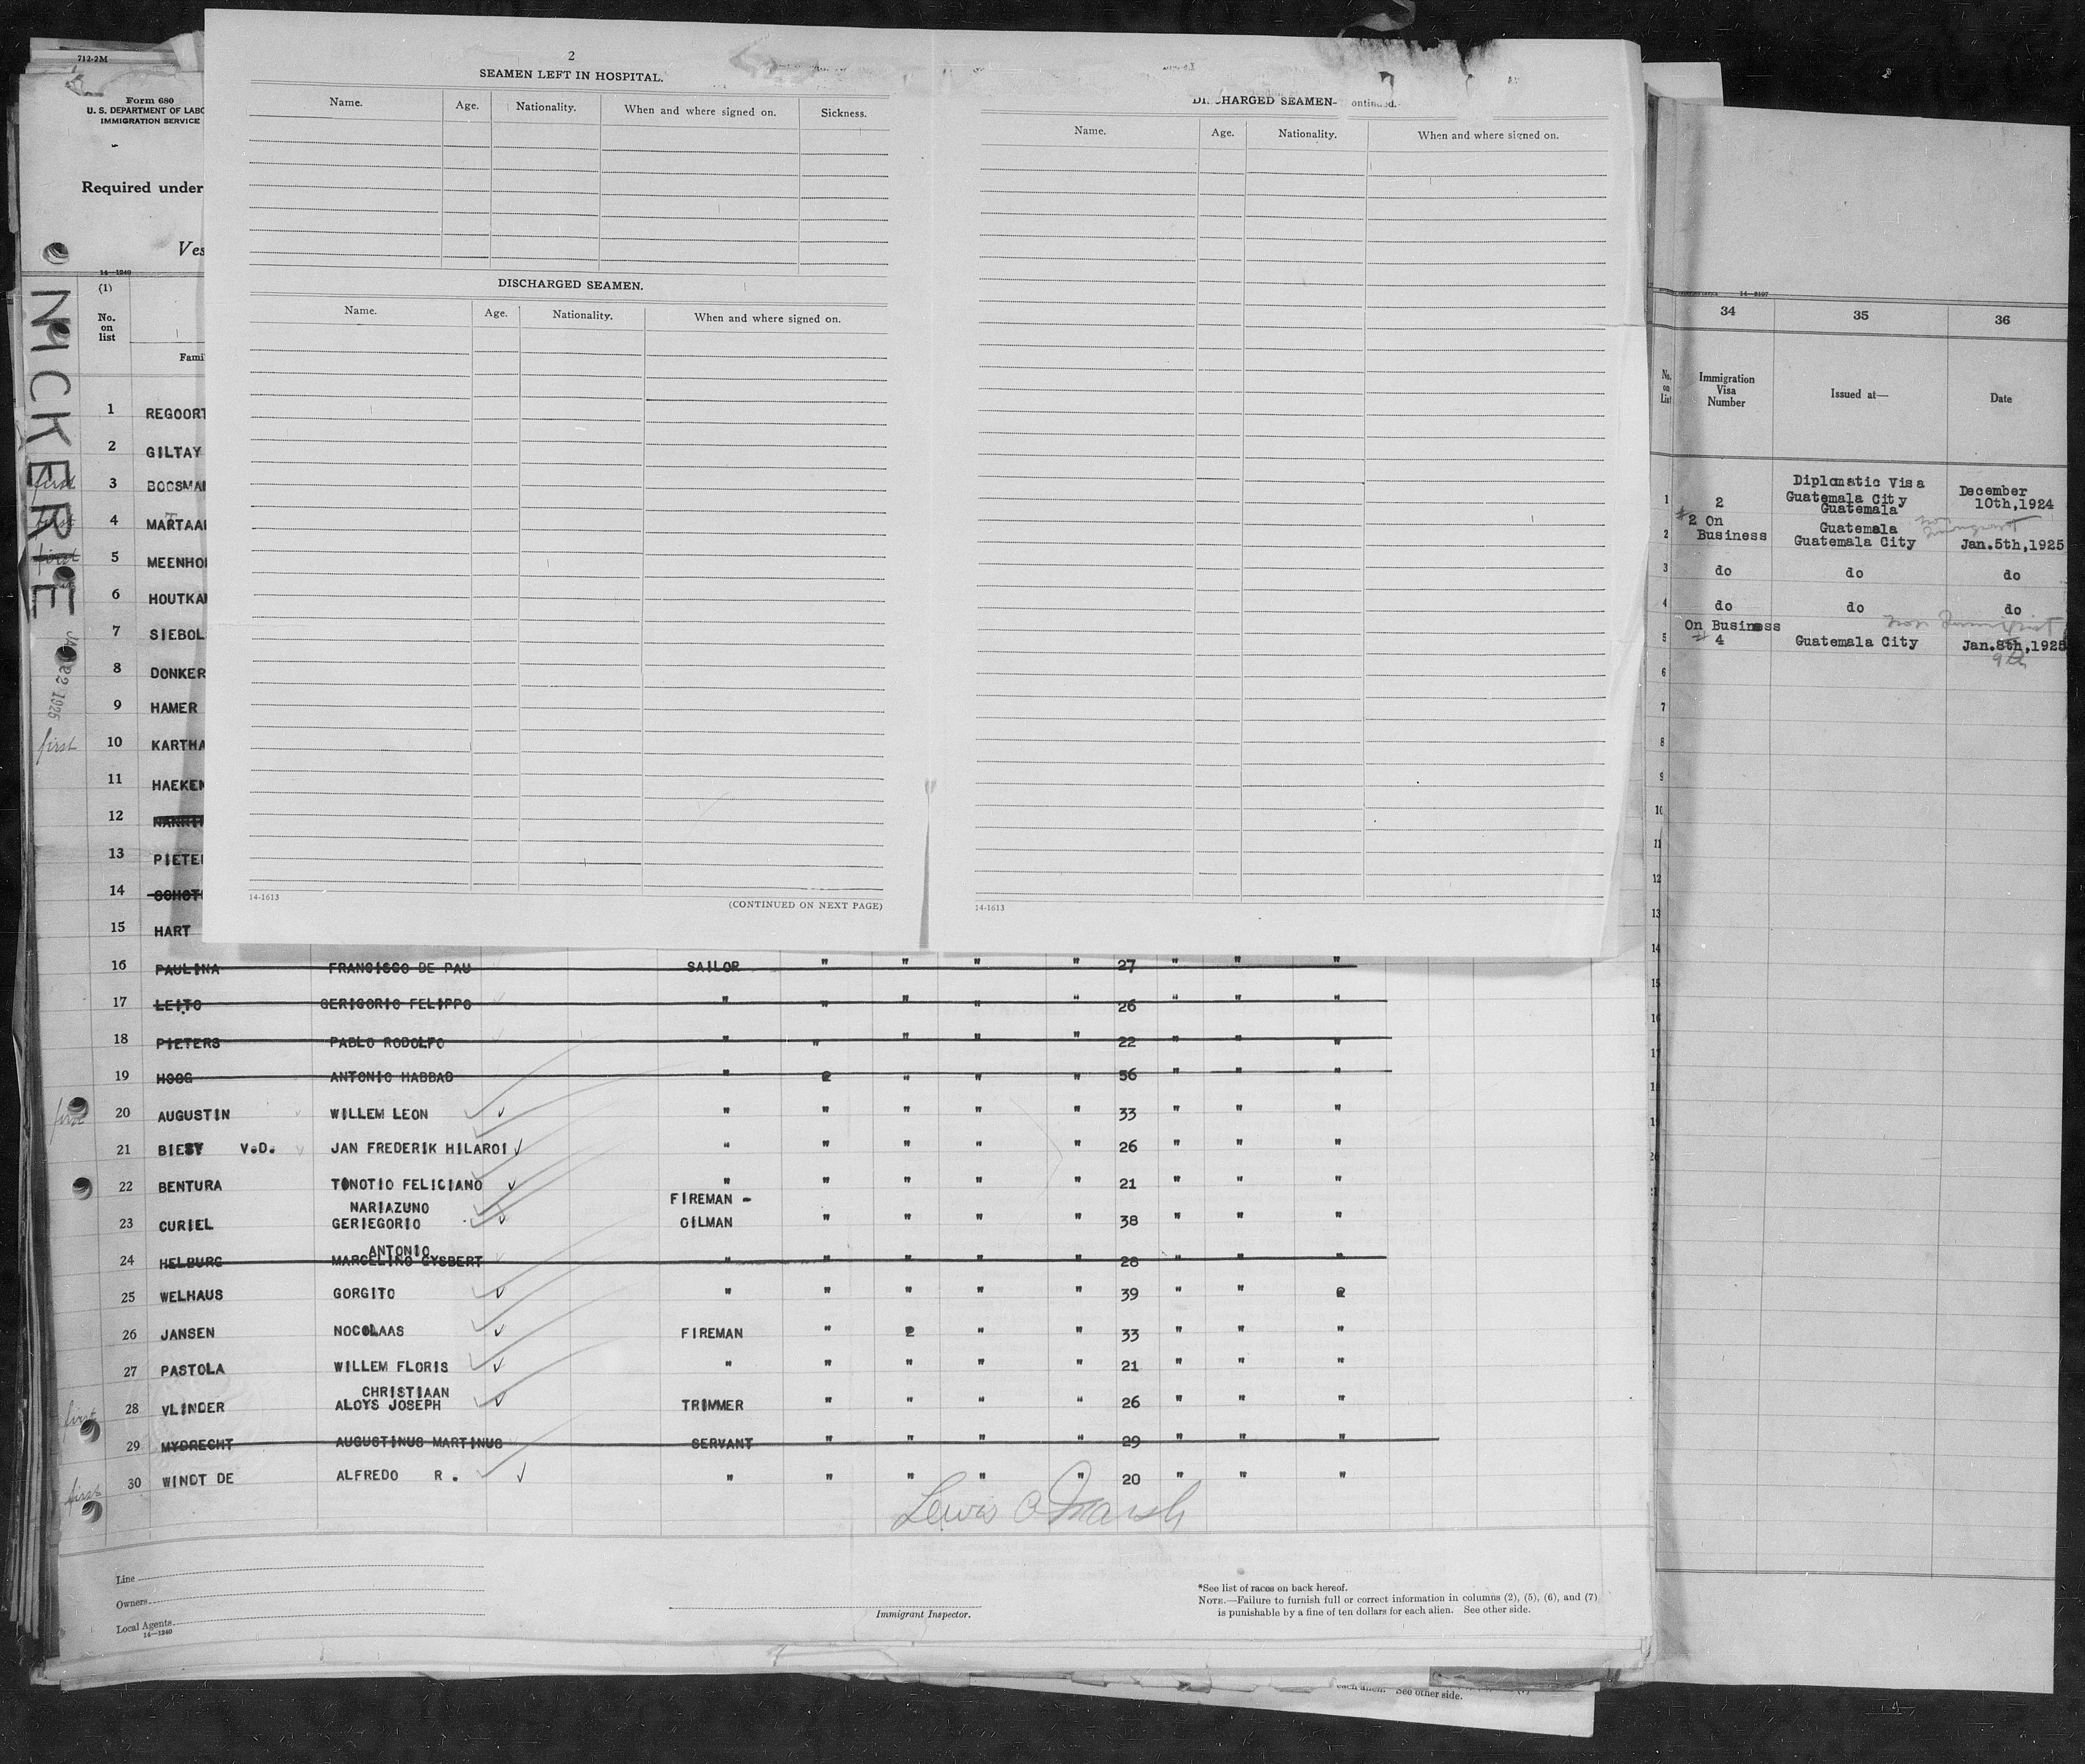 712-2M
Form 680
U. S. DEPARTMENT OF LABO
IMMIGRATION SERVICE
Required under
Ves
14—1240
(1)
No.
on
list
Fami
NICKERIE
22 1925
1 REGOORT
2 GILTAY
first 3 BOOSMA
first 4 MARTAA
first 5 MEENHO
6 HOUTKA
7 SIEBOL
8 DONKER
9 HAMER
first 10 KARTHA
11 HAEKE
12
13 PIETE
14 SCHOT
15 HART
16 PAULINA FRANCISCO DE PAU SAILOR " " " " 27 " " "
17 LEITO GERIGORIO FELIPPO " " " " " 26 " " "
18 PIETERS PABLO RODOLFO " " " " " 22 " " "
19 HOOG ANTONIO HABBAD " 2 " " " 56 " " "
first 20 AUGUSTIN WILLEM LEON " " " " " 33 " " "
21 BIESY V.D. JAN FREDERIK HILAROI " " " " " 26 " " "
22 BENTURA TONOTIO FELICIANO " " " " " 21 " " "
NARIAZUNO FIREMAN -
23 CURIEL GERIEGORIO OILMAN " " " " 38 " " "
ANTONIO
24 HELBURG MARCELINO GYSBERT " " " " " 28 " " "
25 WELHAUS GORGITO " " " " " 39 " " 2
26 JANSEN NOCOLAAS FIREMAN " 2 " " 33 " " "
27 PASTOLA WILLEM FLORIS " " " " " 21 " " "
CHRISTIAAN
first 28 VLINDER ALOYS JOSEPH TRIMMER " " " " 26 " " "
29 MYDRECHT AUGUSTINUS MARTINUS SERVANT " " " " 29 " " "
first 30 WINDT DE ALFREDO R. " " " " " 20 " " "
Lewis C Marsh
Line
Owners
Local Agents
14—1240
Immigrant Inspector.
*See list of races on back hereof.
NOTE.—Failure to furnish full or correct information in columns (2), (5), (6), and (7)
is punishable by a fine of ten dollars for each alien. See other side.
each alien. See other side.
2
SEAMEN LEFT IN HOSPITAL.
Name. Age. Nationality. When and where signed on. Sickness.
DISCHARGED SEAMEN.
Name. Age. Nationality. When and where signed on.
14-1613
(CONTINUED ON NEXT PAGE)
DI CHARGED SEAMEN- ontinued.
Name. Age. Nationality. When and where signed on.
14-1613
34 35 36
No.
on
List
Immigration
Visa
Number
Issued at—
Date
1 2 Diplomatic Visa
Guatemala City
Guatemala
December
10th,1924
2 #2 On
Business
Guatemala
Guatemala City
Jan.5th,1925
3 do do do
4 do do do
On Business
5 # 4 Guatemala City Jan.8th,1925
9th
6
7
8
9
10
11
12
13
14
15
16
17
18
19